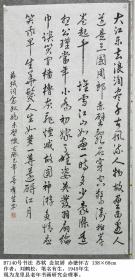 大江东去浪淘尽千古风流人物故垒西边人
道是三国周郎赤壁乱石穿空惊涛拍岸
卷起千堆雪江山如画一时多少豪杰遥想
公瑾当年小乔初嫁了雄姿英发羽扇纶巾谈
笑间樯橹灰飞烟灭故国神游多情应
笑我早生华发人生如梦一尊还酹江月
苏轼词念奴娇赤壁怀古
87140号书法 苏轼 念奴娇 赤壁怀古 138×68cm
作者：刘鹏松，笔名育生，1948年生
现为龙里县老年书画研究会理事。